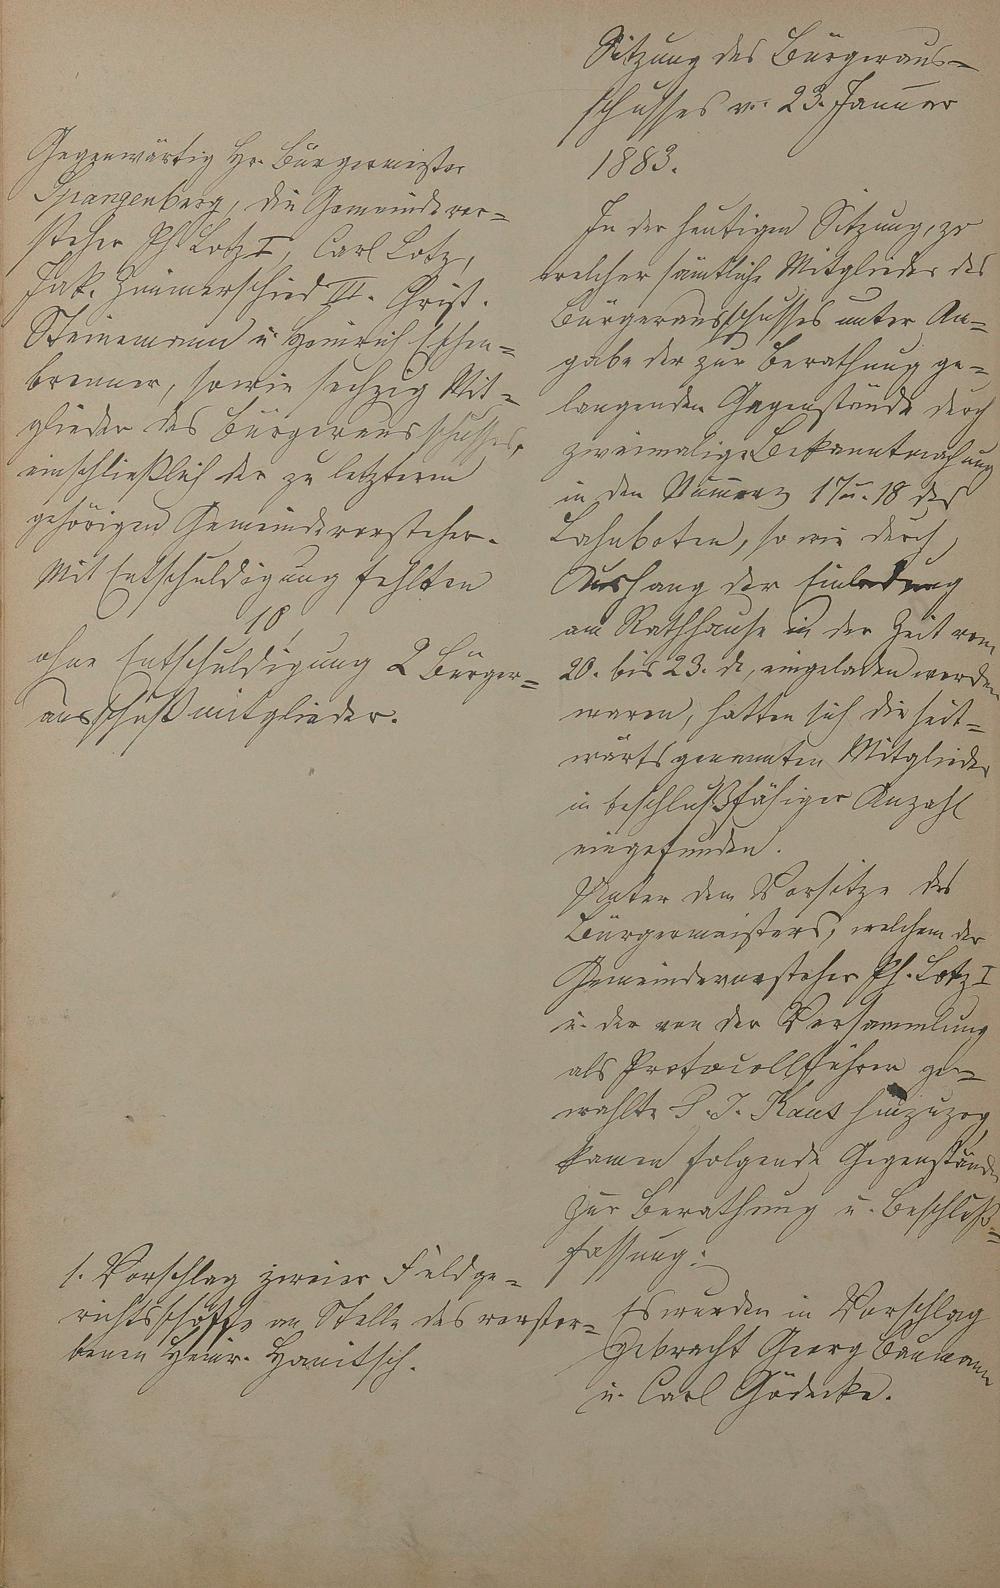 Sitzung des Bürgeraus-
schusses v. 23. Januar
1883.
Gegenwärtig Hr. Bürgermeister
Spangenberg, die Gemeindevor=
steher Ph. Lotz I, Carl Lotz,
Jak. Zimmerschied III. Christ.
Steinemann u. Heinrich Eschen=
brenner, sowie sechzig Mit=
glieder des Bürgerausschusses,
einschließlich der zu letzterem
gehörigen Gemeindevorsteher.
Mit Entschuldigung fehlten
10,
ohne Entschuldigung 2 Bürger=
ausschußmitglieder.
In der heutigen Sitzung, zu
welcher sämtliche Mitglieder des
Bürgerausschusses unter An=
gabe der zur Berathung ge=
langenden Gegenstände durch
zweimalige Bekanntmachung
in den Nummern 17 u. 18 des
Lahnboten, sowie durch
Aushang der Einladung
am Rathhause in der Zeit vom
20. bis 23. d., eingeladen worden
waren, hatten sich die seit=
wärts genannten Mitglieder
in beschlußfähiger Anzahl
eingefunden.
Unter dem Vorsitze des
Bürgermeisters, welchem der
Gemeindevorsteher Ph. Lotz I
u. der von der Versammlung
als Protocollführer ge=
wählte P. J. Kaus hinzuzog,
kamen folgende Gegenstände
zur Berathung u. Beschluß=
fassung:
1. Vorschlag zweier Feldge=
richtsschöffe an Stelle des verstor=
benen Heinr. Hanitsch.
Es wurden in Vorschlag
gebracht Georg Baumann
u. Carl Gödecke.